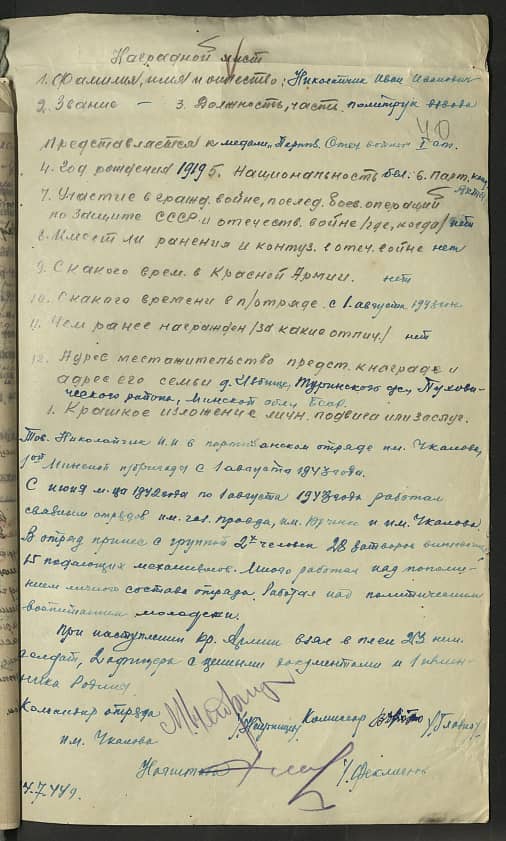 Наградной лист
1. Фамилия, имя и отчество: Николайчик Иван Иванович
2. Звание — 3. Должность, часть политрук взвода
40
Представляется к медали „Партиз. Отеч. войны" I ст.
4. Год рождения 1919 5. Национальность бел. 6. Парт.
7. Участие в гражд. войне, послед. боев. операций
по защите СССР и отечеств. войне /где, когда/ нет
8. Имеет ли ранения и контуз. в отеч. войне нет
9. С какого врем. в Красной Армии. нет
10. С какого времени в п/отряде. с 1. августа 1943
11. Чем ранее награжден /за какие отлич./ нет
12. Адрес местожительство предст. к награде и
адрес его семьи д. Туринского с/с, Пухови-
ческого района, Минской обл. БССР.
1. Краткое изложение личн. подвига или заслуг.
Тов. Николайчик И.И в партизанском отряде им. Чкалова,
1ой Минской п/бригады с 1 августа 1943 года.
С июня м-ца 1942 года по 1 августа 1943 года работал
связным отрядов им. газ. Правда, им. и им. Чкалова.
В отряд принес с группой 2х человек 28 затворов
15 подающих механизмов. Много работал над пополне-
нием личного состава отряда. Работал над политическим
воспитанием молодежи.
При наступлении Кр. Армии взял в плен 23 нем.
солдат, 2 офицера с ценными документами и 1 измен-
ника Родины.
Командир отряда Комиссар
им. Чкалова
4.7.44 г.